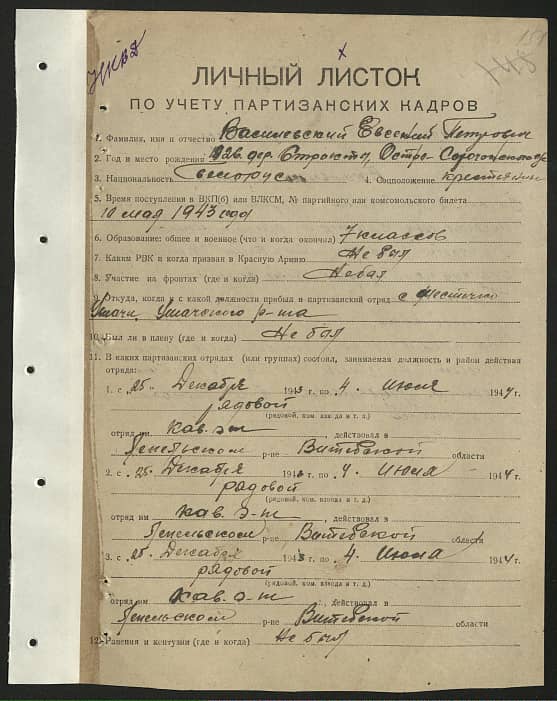 НКВД
ЛИЧНЫЙ ЛИСТОК
ПО УЧЕТУ ПАРТИЗАНСКИХ КАДРОВ
1. Фамилия, имя и отчество Василевский Евгений Петрович
2. Год и место рождения дер.
3. Национальность белорус 4. Соцположение крестьянин
5. Время поступления в ВКП(б) или ВЛКСМ, № партийного или комсомольского билета
10 мая 1943 года
6. Образование: общее и военное (что и когда окончил) 7 классов
7. Каким РВК и когда призван в Красную Армию Не был
8. Участие на фронтах (где и когда)
9. Откуда, когда и с какой должности прибыл в партизанский отряд с местечко
Ушачи, Ушачского р-на
10. Был ли в плену (где и когда) Не был
11. В каких партизанских отрядах (или группах) состоял, занимаемая должность и район действия
отряда:
1. с „25“ Декабря 1943 г. по 4. Июля 1944 г.
рядовой
(рядовой, ком. взвода и т. д.)
отряд им кав. э-т, действовал в
Лепельском р-не Витебской области
2. с „25“ Декабря 1943 г. по „4“ Июля 1944 г.
рядовой
(рядовой, ком. взвода и т. д.)
отряд им кав. э-т, действовал в
Лепельском р-не Витебской области
3. с „25“ Декабря 1943 г. по 4. Июля 1944 г.
рядовой
(рядовой, ком. взвода и т. д.)
отряд им кав. э-т, действовал в
Лепельском р-не Витебской области
12. Ранения и контузии (где и когда) Не был